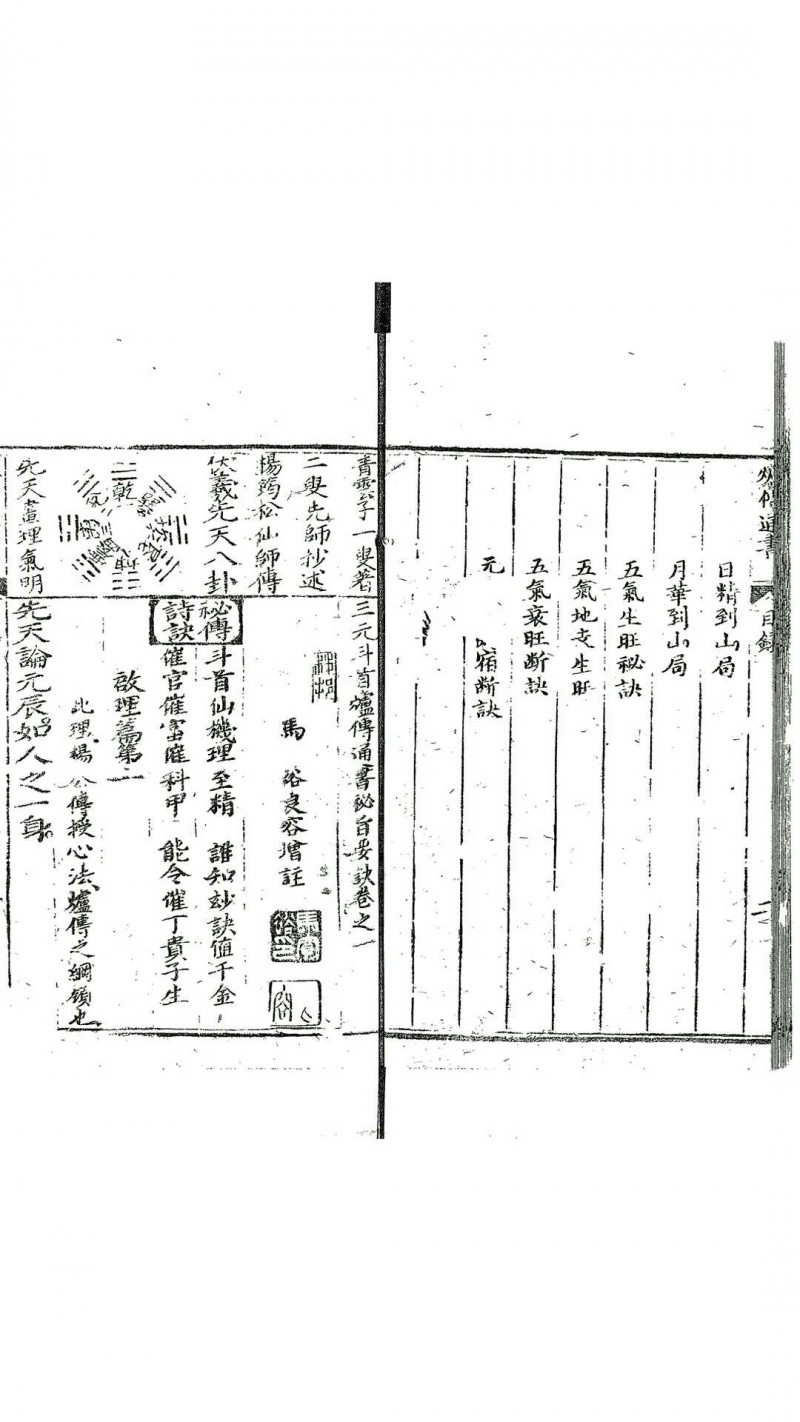 傳通書
目錄
日精到山局
月華到山局
五氣生旺秘訣
五氣地支生旺
五氣衰旺斷訣
元 宿斷訣
青雲子一叟著
二叟先師抄述
楊筠松仙師傳
伏羲先天八卦
乾
先天晝理氣明
三元斗首爐傳通書秘旨妥訣卷之一
馬 良容增註
秘傳
詩訣
斗首仙機理至精 誰知玅訣值千金
催官催富催科甲 能令催丁貴子生
啟理篇第一
此理楊公傳授心法爐傳之綱領也
先天論元辰如人之一身